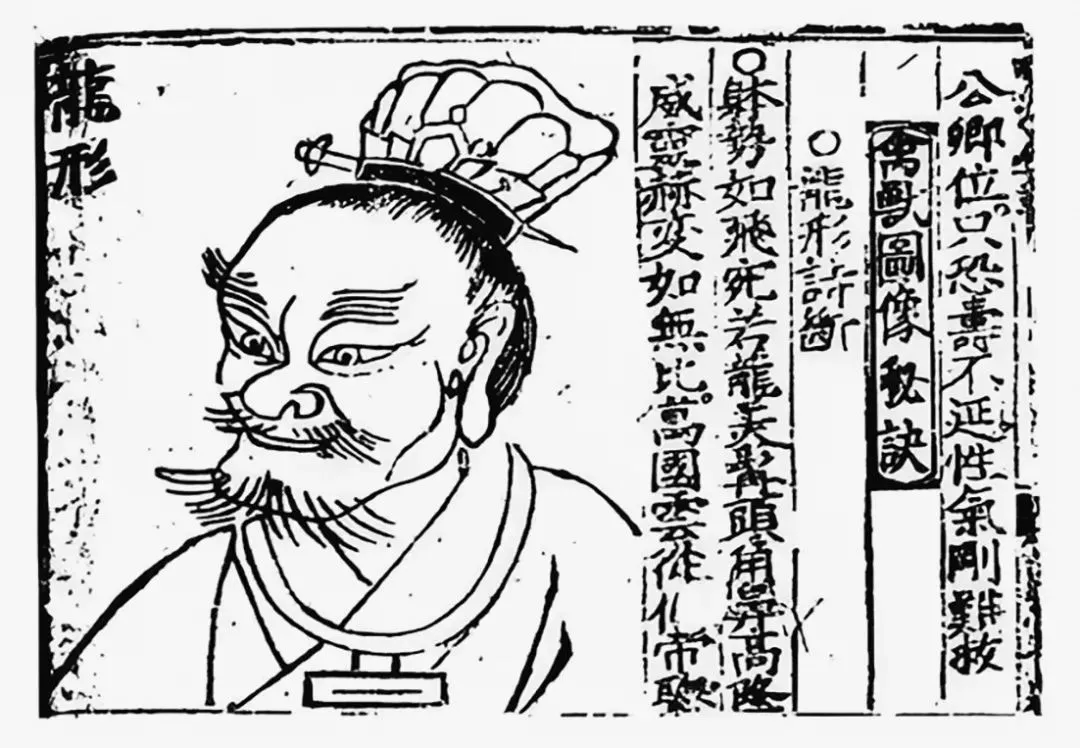 公卿位只恐壽不延性氣剛難救
禽獸圖像秘訣
○龍形詩斷
○躰勢如飛宛若龍美髯頭角鼻高隆
威靈赫奕如無比萬國雲從化帝聦
龍形